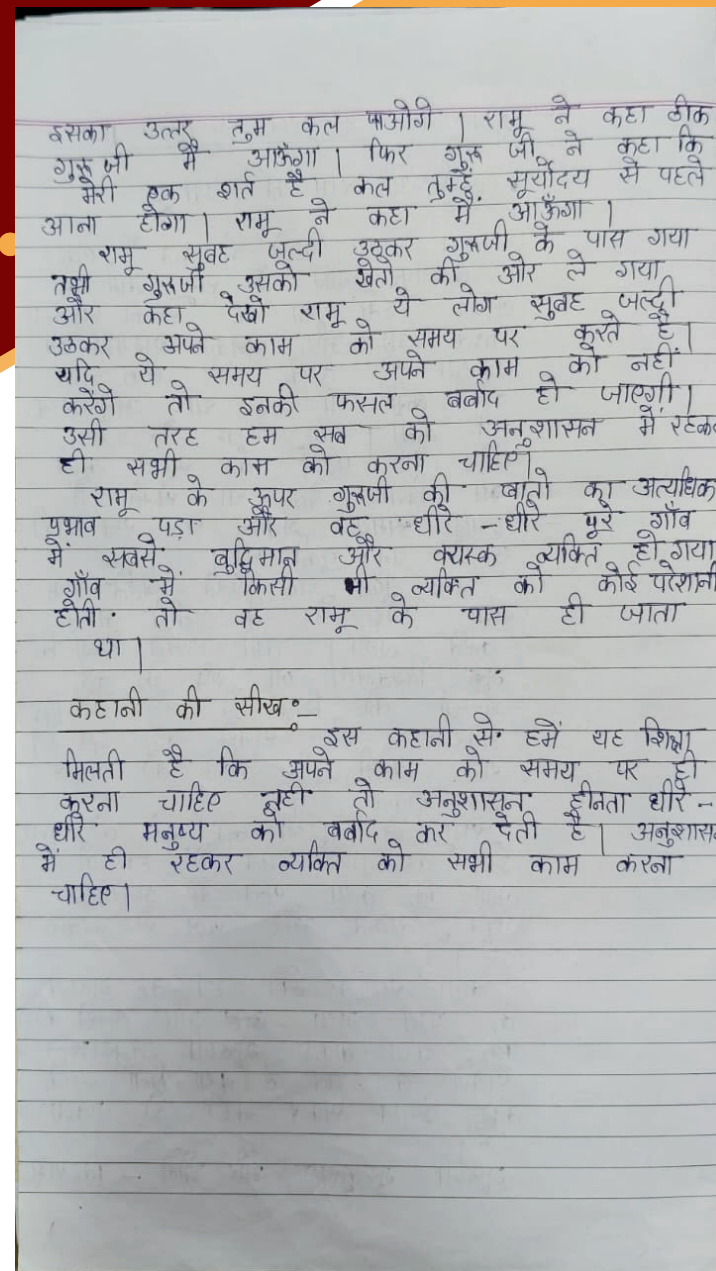 इसका उत्तर तुम कल पाओगे | रामू ने कहा ठीक
गुरू जी मैं आऊँगा | फिर गुरू जी ने कहा कि
मेरी एक शर्त है कल तुम्हें सूर्योदय से पहले
आना होगा | रामू ने कहा मैं आऊँगा |
रामू सुबह जल्दी उठकर गुरूजी के पास गया
तभी गुरूजी उसको खेतो की ओर ले गया
और कहा देखो रामू ये लोग सुबह जल्दी
उठकर अपने काम को समय पर करते है |
यदि ये समय पर अपने काम को नहीं
करेंगे तो इनकी फसल बर्बाद हो जाएगी |
उसी तरह हम सब को अनुशासन में रहकर
ही सभी काम को करना चाहिए |
रामू के ऊपर गुरूजी की बातो का अत्यधिक
प्रभाव पड़ा और वह धीरे - धीरे पूरे गाँव
में सबसे बुद्धिमान और वयस्क व्यक्ति हो गया
गाँव में किसी भी व्यक्ति को कोई परेशानी
होती तो वह रामू के पास ही जाता
था |
कहानी की सीख :-
इस कहानी से हमें यह शिक्षा
मिलती है कि अपने काम को समय पर ही
करना चाहिए नही तो अनुशासन हीनता धीरे -
धीरे मनुष्य को बर्बाद कर देती है | अनुशास
में ही रहकर व्यक्ति को सभी काम करना
चाहिए |